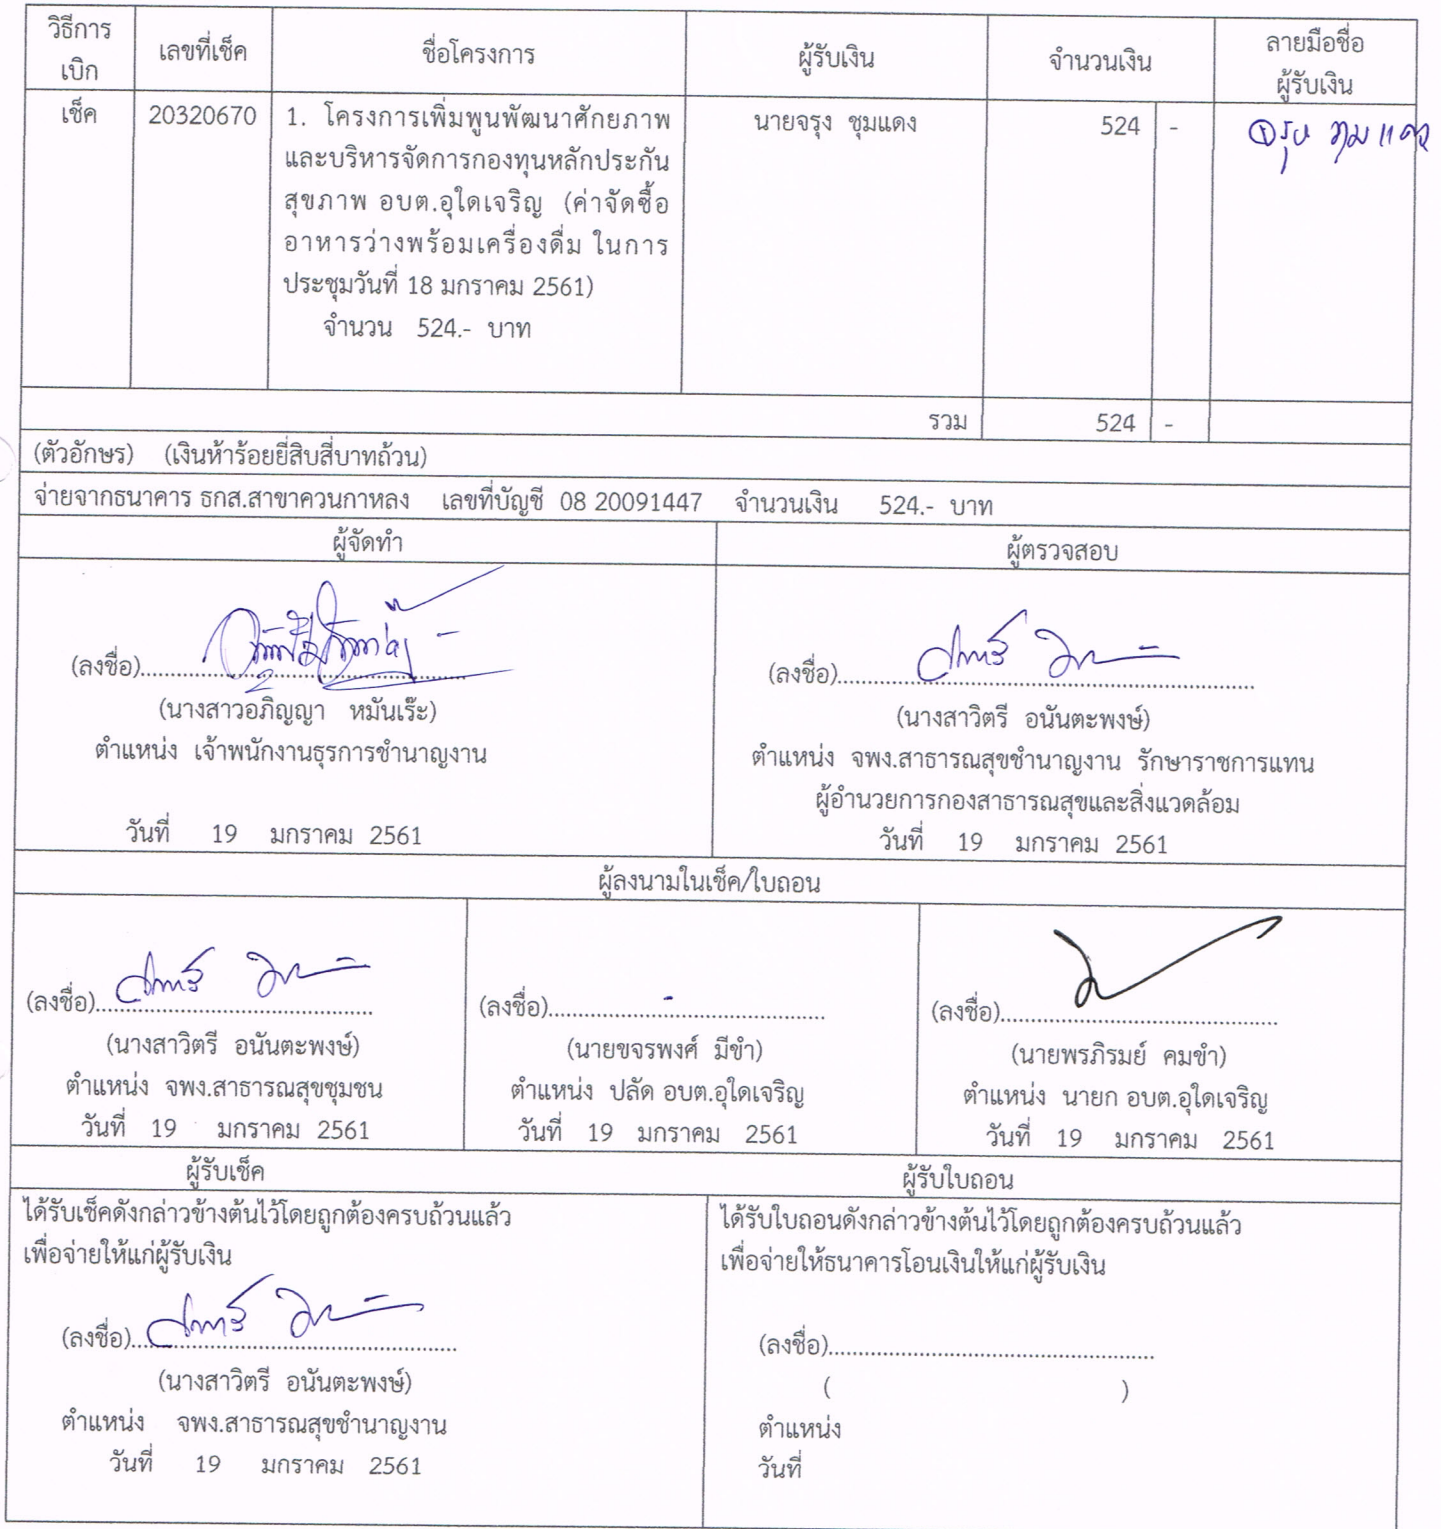 วิธีการ
เบิก
เลขที่เช็ค
ชื่อโครงการ
ผู้รับเงิน
จำนวนเงิน
ลายมือชื่อ
ผู้รับเงิน
เช็ค 20320670 1. โครงการเพิ่มพูนพัฒนาศักยภาพ นายจรุง ชุมแดง 524 - จรุง ชุมแดง
และบริหารจัดการกองทุนหลักประกัน
สุขภาพ อบต.อุใดเจริญ (ค่าจัดซื้อ
อาหารว่างพร้อมเครื่องดื่ม ในการ
ประชุมวันที่ 18 มกราคม 2561)
จำนวน 524.- บาท
รวม 524 -
(ตัวอักษร) (เงินห้าร้อยยี่สิบสี่บาทถ้วน)
จ่ายจากธนาคาร ธกส.สาขาควนกาหลง เลขที่บัญชี 08 20091447 จำนวนเงิน 524.- บาท
ผู้จัดทำ
(ลงชื่อ)
(นางสาวอภิญญา หมันเร๊ะ)
ตำแหน่ง เจ้าพนักงานธุรการชำนาญงาน
วันที่ 19 มกราคม 2561
ผู้ตรวจสอบ
(ลงชื่อ)
(นางสาวิตรี อนันตะพงษ์)
ตำแหน่ง จพง.สาธารณสุขชำนาญงาน รักษาราชการแทน
ผู้อำนวยการกองสาธารณสุขและสิ่งแวดล้อม
วันที่ 19 มกราคม 2561
ผู้ลงนามในเช็ค/ใบถอน
(ลงชื่อ)
(นางสาวิตรี อนันตะพงษ์)
ตำแหน่ง จพง.สาธารณสุขชุมชน
วันที่ 19 มกราคม 2561
(ลงชื่อ) -
(นายขจรพงศ์ มีขำ)
ตำแหน่ง ปลัด อบต.อุใดเจริญ
วันที่ 19 มกราคม 2561
(ลงชื่อ)
(นายพรภิรมย์ คมขำ)
ตำแหน่ง นายก อบต.อุใดเจริญ
วันที่ 19 มกราคม 2561
ผู้รับเช็ค
ได้รับเช็คดังกล่าวข้างต้นไว้โดยถูกต้องครบถ้วนแล้ว
เพื่อจ่ายให้แก่ผู้รับเงิน
(ลงชื่อ)
(นางสาวิตรี อนันตะพงษ์)
ตำแหน่ง จพง.สาธารณสุขชำนาญงาน
วันที่ 19 มกราคม 2561
ผู้รับใบถอน
ได้รับใบถอนดังกล่าวข้างต้นไว้โดยถูกต้องครบถ้วนแล้ว
เพื่อจ่ายให้ธนาคารโอนเงินให้แก่ผู้รับเงิน
(ลงชื่อ)
( )
ตำแหน่ง
วันที่